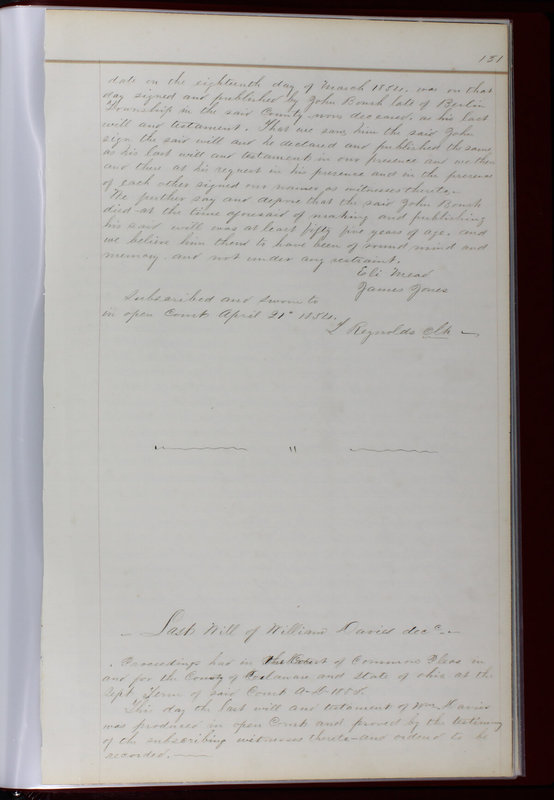 151
date on the eighteenth day of March 1854. was on that
day signed and published by John Roush late of Berlin
Township in the said County now deceased, as his last
will and testament. That we saw him the said John
sign the said will and he declared and published the same,
as his last will and testament in our presence and we then
and there at his request in his presence and in the presence
of each other signed our names as witnesses thereto.
We further say and depose that the said John Roush
died at the time aforesaid of making and publishing
his said will was at least fifty five years of age. and
we believe him then to have been of sound mind and
memory. and not under any restraint.
Eli Mead
James Jones
Subscribed and sworn to
in open Court April 21st 1854.
T Reynolds Clk
"
Last Will of William Davies decd
Proceedings had in the Court of Common Pleas in
and for the County of Delaware and State of Ohio at the
Sept. Term of said Court A D 1854.
This day the last will and testament of Wm. Davies
was produced in open Court and proved by the testimony
of the subscribing witnesses thereto and ordered to be
recorded.